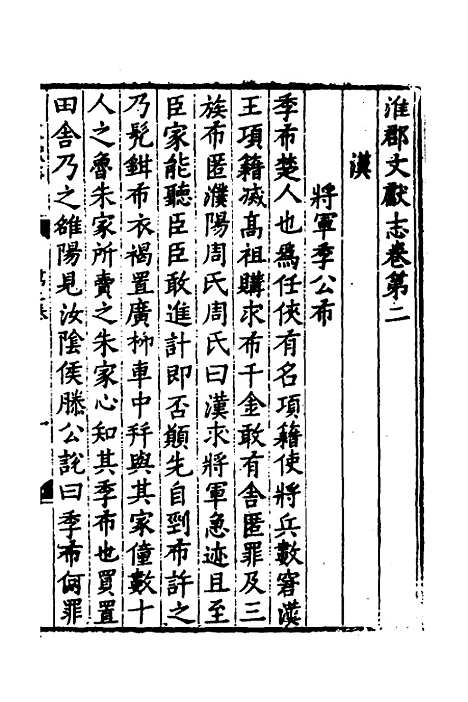 淮郡文獻志卷第二
漢
將軍季公布
季布楚人也爲任俠有名項籍使將兵數窘漢
王項籍滅高祖購求布千金敢有舍匿罪及三
族布匿濮陽周氏周氏曰漢求將軍急迹且至
臣家能聽臣臣敢進計即否願先自剄布許之
乃髡鉗布衣褐置廣柳車中幷與其家僮數十
人之魯朱家所賣之朱家心知其季布也買置
田舍乃之雒陽見汝陰侯滕公說曰季布何罪